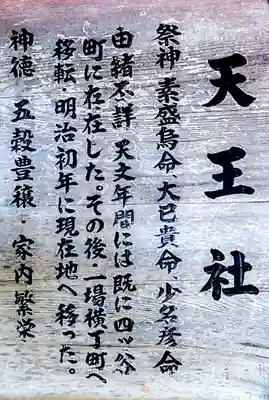 天王社
祭神 素盛烏命、大已貴命、少名彦命
由緒不詳 天文年間には既に四ッ谷
町に存在した。その後、二場横丁町へ
移転・明治初年に現在地へ移った。
神徳・五穀豊穣・家内繁栄